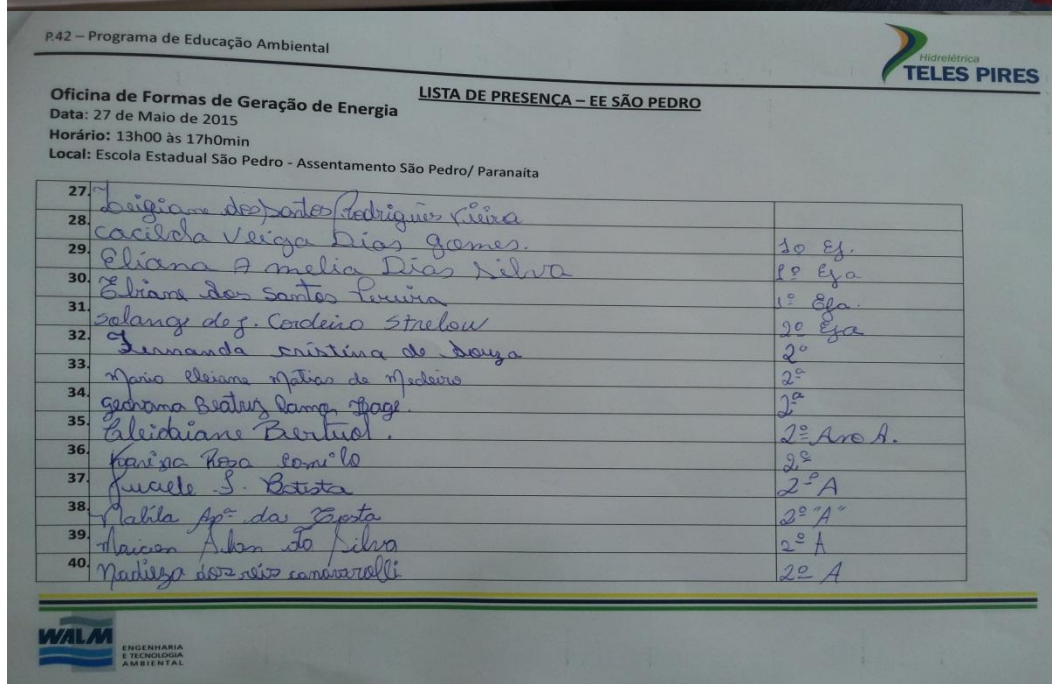 P.42 – Programa de Educação Ambiental
Hidrelétrica
TELES PIRES
LISTA DE PRESENÇA – EE SÃO PEDRO
Oficina de Formas de Geração de Energia
Data: 27 de Maio de 2015
Horário: 13h00 às 17h0min
Local: Escola Estadual São Pedro - Assentamento São Pedro/ Paranaíta
27. Leigiane dos Santos Rodrigues Vieira
28. Cacilda Veiga Dias gomes. 1º Ej.
29. Eliana Amelia Dias Silva 1º Eja
30. Ebiane dos Santos Pereira 1º Eja.
31. Solange de J. Cordeiro Strelow 2º Eja
32. Fernanda cristina de Souza 2º
33. Maria Cleiane Matias de Medeiro 2º
34. Beatriz Ramos 2ª
35. Cleidaiane Bertuol. 2º Ano A.
36. Karina Rosa Camilo 2º
37. S. Batista 2º A
38. Apª da Costa 2º "A"
39. da Silva 2º A
40. dos reis 2º A
WALM
ENGENHARIA
E TECNOLOGIA
AMBIENTAL